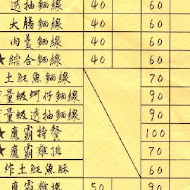 透抽麵線 40 60
大腸麵線 40 60
肉羹麵線 40 60
★綜合麵線 40 60
土魠魚麵線 70
量級蚵仔麵線 90
量級透抽麵線 90
★鷹霸特餐 100
★鷹霸雞排 70
炸土魠魚酥 60
鷹霸雞 50 90